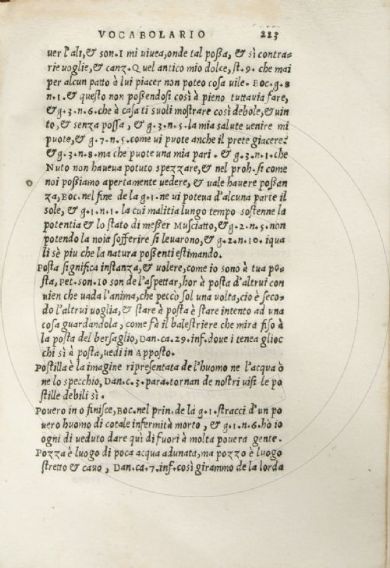 VOCABOLARIO 223
uer l'ali, & son. I mi uiuea, onde tal poßa, & sì contra-
rie uoglie, & canz. Quel antico mio dolce, st. 9. che mai
per alcun patto à lui piacer non poteo cosa uile. BOC. g. 8
n. 1. & questo non poßendosi così à pieno tuttauia fare,
& g. 3. n. 6. che à casa ti suoli mostrare così debole, & uin
to, & senza possa, & g. 3. n. 5. la mia salute uenire mi
puote, & g. 7. n. 5. come ui puote anche il prete giacere?
& g. 3. n. 8. ma che puote una mia pari. & g. 3. n. 1. che
Nuto non haueua potuto spezzare, & nel proh. si come
noi poßiamo apertamente uedere, & uale hauere poßan
za, BOC. nel fine de la g. 1. ne ui poteua d'alcuna parte il
sole, & g. 1. n. 1. la cui malitia lungo tempo sostenne la
potentia & lo stato di meßer Musciatto, & g. 2. n. 5. non
potendo la noia sofferire si leuarono, & g. 2. n. 10. iqua
li sè piu che la natura poßenti estimando.
Posta significa instanza, & uolere, come io sono à tua po-
sta, PET. son. 10 son de l'aspettar, hor è posta d'altrui con
uien che uada l'anima, che peccò sol una volta, ciò è seco-
do l'altrui uoglia, & stare è posta è stare intento ad una
cosa guardandola, come fà il balestriere che mira fiso à
la posta del bersaglio, DAN. ca. 29. inf. doue i tenea glioc
chi sì à posta, uedi in Apposto.
Postilla è la imagine ripresentata de l'huomo ne l'acqua ò
ne lo specchio, DAN. c. 3. para. tornan de nostri uisi le po
stille debili sì.
Pouero in o finisce, BOC. nel prin. de la g. 1. stracci d'un po
uero huomo di cotale infermità morto, & g. 1. n. 6. hò io
ogni dì ueduto dare quì di fuori à molta pouera gente.
Pozza è luogo di poca acqua adunata, ma pozzo è luogo
stretto & cauo, DAN. ca. 7. inf. così girammo de la lorda